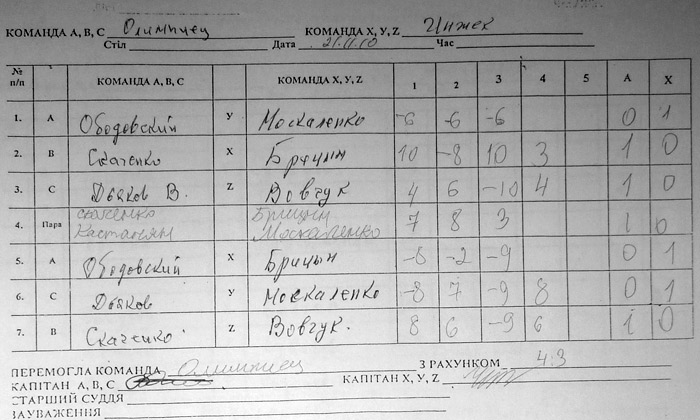 КОМАНДА А, В, С Олимпиец КОМАНДА X, Y, Z Чижек
Стіл Дата 21.11.10 Час
№ п/п КОМАНДА А, В, С КОМАНДА X, Y, Z 1 2 3 4 5 А Х
1. А Ободовский Y Москаленко -6 -6 -6 0 1
2. В Скаченко X Брицын 10 -8 10 3 1 0
3. С Дьяков В. Z Вовчук 4 6 -10 4 1 0
4. Пара Скаченко Брицын 7 8 3 1 0
Кастанян Москаленко
5. А Ободовский X Брицын -8 -2 -9 0 1
6. С Дьяков Y Москаленко -8 7 -9 8 0 1
7. В Скаченко Z Вовчук. 8 6 -9 6 1 0
ПЕРЕМОГЛА КОМАНДА Олимпиец З РАХУНКОМ 4:3
КАПІТАН А, В, С КАПІТАН X, Y, Z
СТАРШИЙ СУДДЯ
ЗАУВАЖЕННЯ